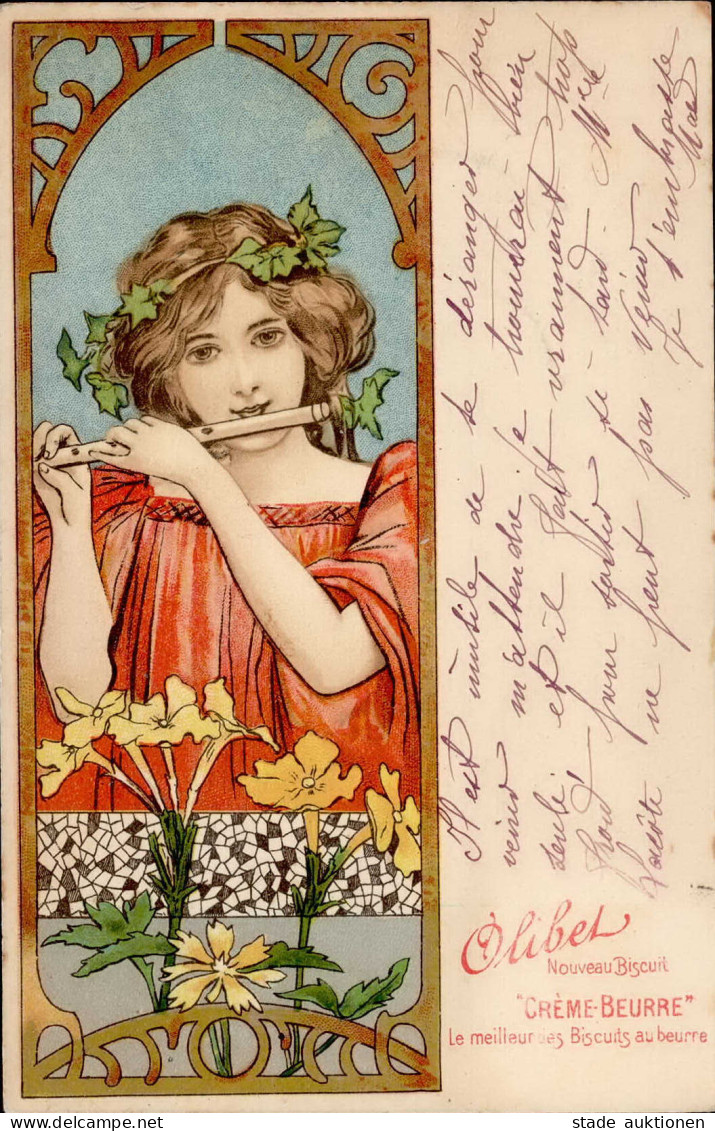 Il est inutile de te déranger pour
venir m'attendre je trouverai bien
seule et il fait vraiment trop
froid pour sortir si tard. Mlle
Lacoste ne peut pas venir
Je t'embrasse
Olibet
Nouveau Biscuit
"CRÈME-BEURRE"
Le meilleur des Biscuits au beurre
stade auktionen